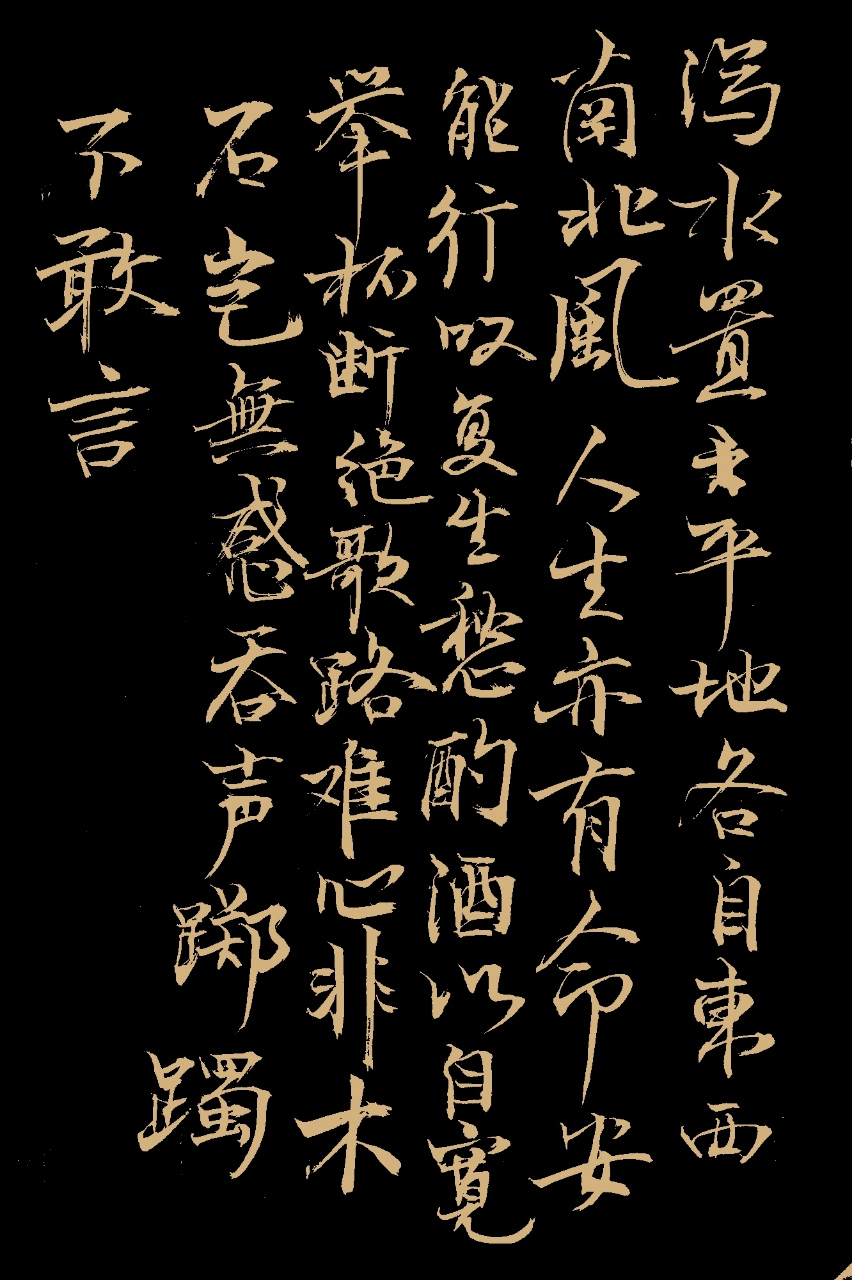 泻水置平地各自東西
南北風人生亦有命安
能行叹复生愁酌酒以自寬
举杯断绝歌路难心非木
石岂無感吞声踯躅
不敢言